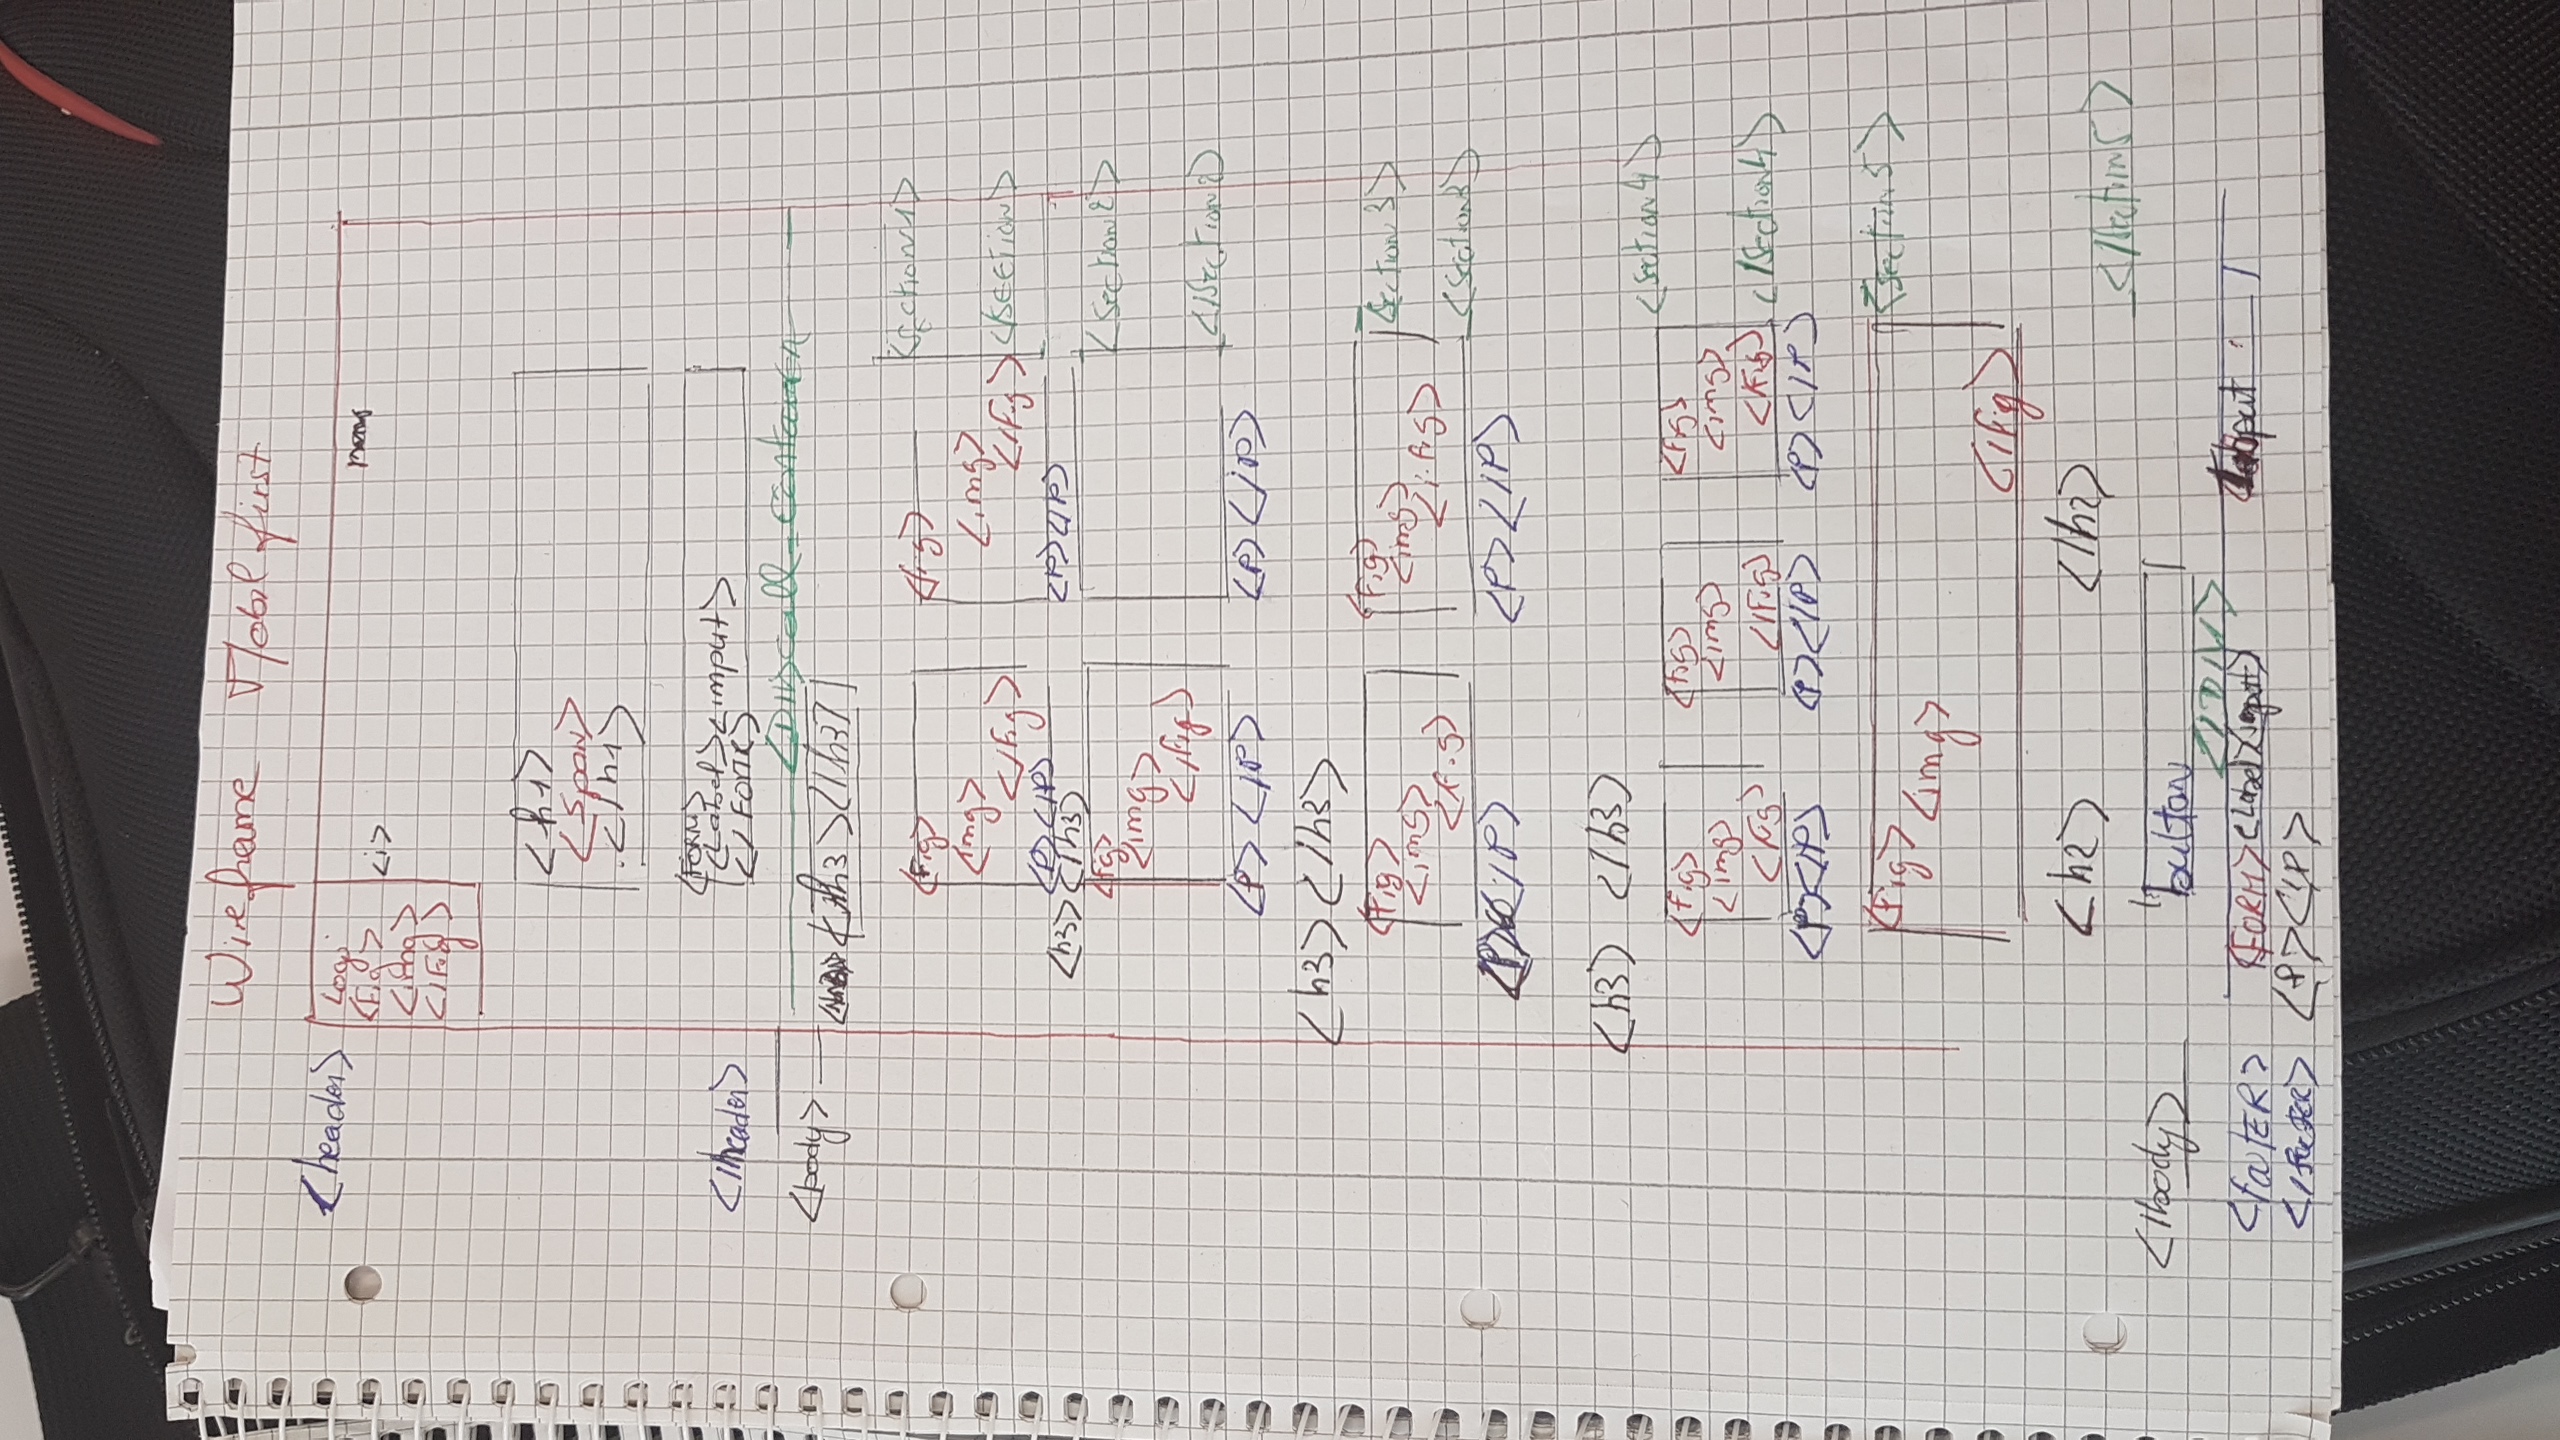 Wireframe Mobil first
<header>
Logo
<Fig>
<img>
</Fig>
<i>
menu
<h1>
<span>
</h1>
<FORM>
<Label><input>
</FORM>
</header>
<DIV> call_container
<body>
<h3></h3>
<Fig> <fig>
<img> <img>
</Fig> </Fig>
<section1>
</SECTion>
<P></P> <P></P>
<h3></h3>
<fig>
<img>
</fig>
<section2>
</Section2>
<P></P> <P></P>
<h3></h3>
<Fig> <Fig>
<img> <img>
</fig> </fig>
<Section3>
<Section3>
<P></P> <P></P>
<h3> </h3>
<section4>
<fig> <fig> <fig>
<img> <img> <img>
</fig> </Fig> </Fig>
</Section4>
<P></P> <P></P> <P></P>
<section5>
<Fig> <img>
</fig>
<h2> </h2>
</Section5>
</body>
button
</DIV>
<footER> <FORM><Label><input>
</footER> <P></P>